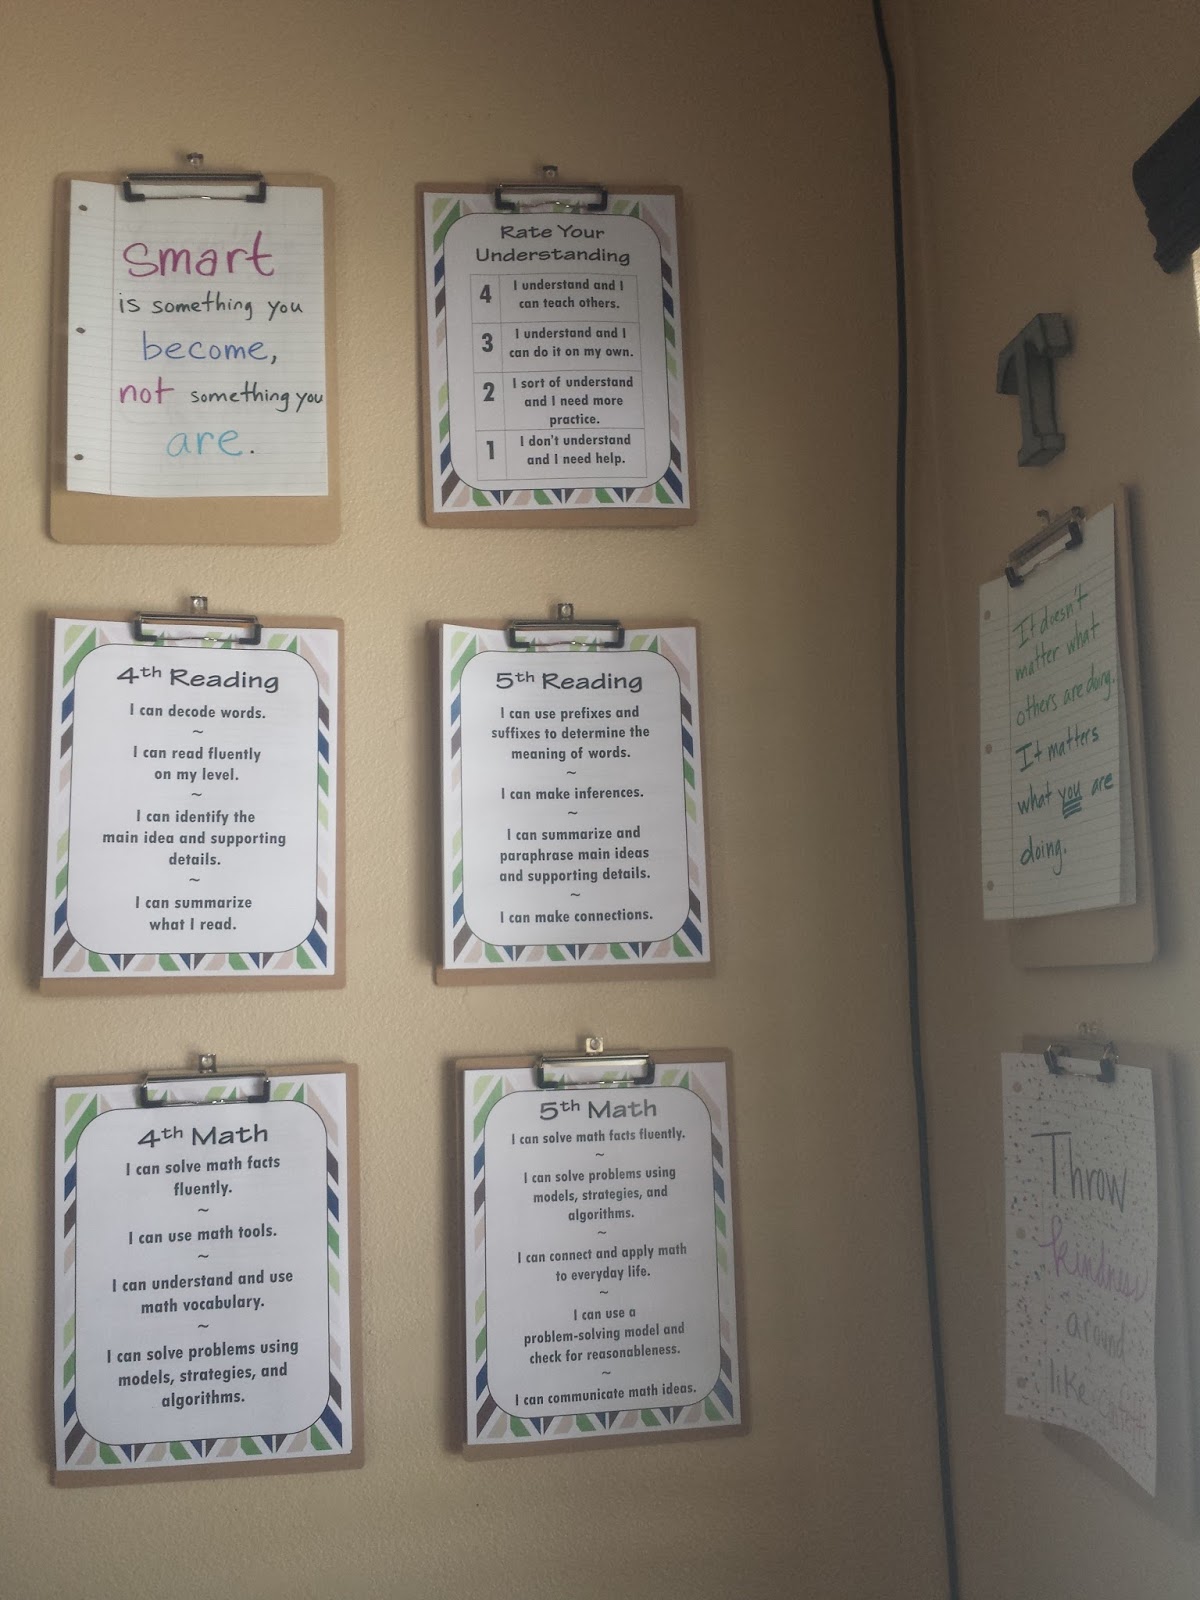 smart
is something you
become,
not something you
are.
Rate Your
Understanding
4 I understand and I
can teach others.
3 I understand and I
can do it on my own.
2 I sort of understand
and I need more
practice.
1 I don't understand
and I need help.
4th Reading
I can decode words.
~
I can read fluently
on my level.
~
I can identify the
main idea and supporting
details.
~
I can summarize
what I read.
5th Reading
I can use prefixes and
suffixes to determine the
meaning of words.
~
I can make inferences.
~
I can summarize and
paraphrase main ideas
and supporting details.
~
I can make connections.
4th Math
I can solve math facts
fluently.
~
I can use math tools.
~
I can understand and use
math vocabulary.
~
I can solve problems using
models, strategies, and
algorithms.
5th Math
I can solve math facts fluently.
~
I can solve problems using
models, strategies, and
algorithms.
~
I can connect and apply math
to everyday life.
~
I can use a
problem-solving model and
check for reasonableness.
~
I can communicate math ideas.
T
It doesn't
matter what
others are doing.
It matters
what you are
doing.
Throw
kindness
around
like